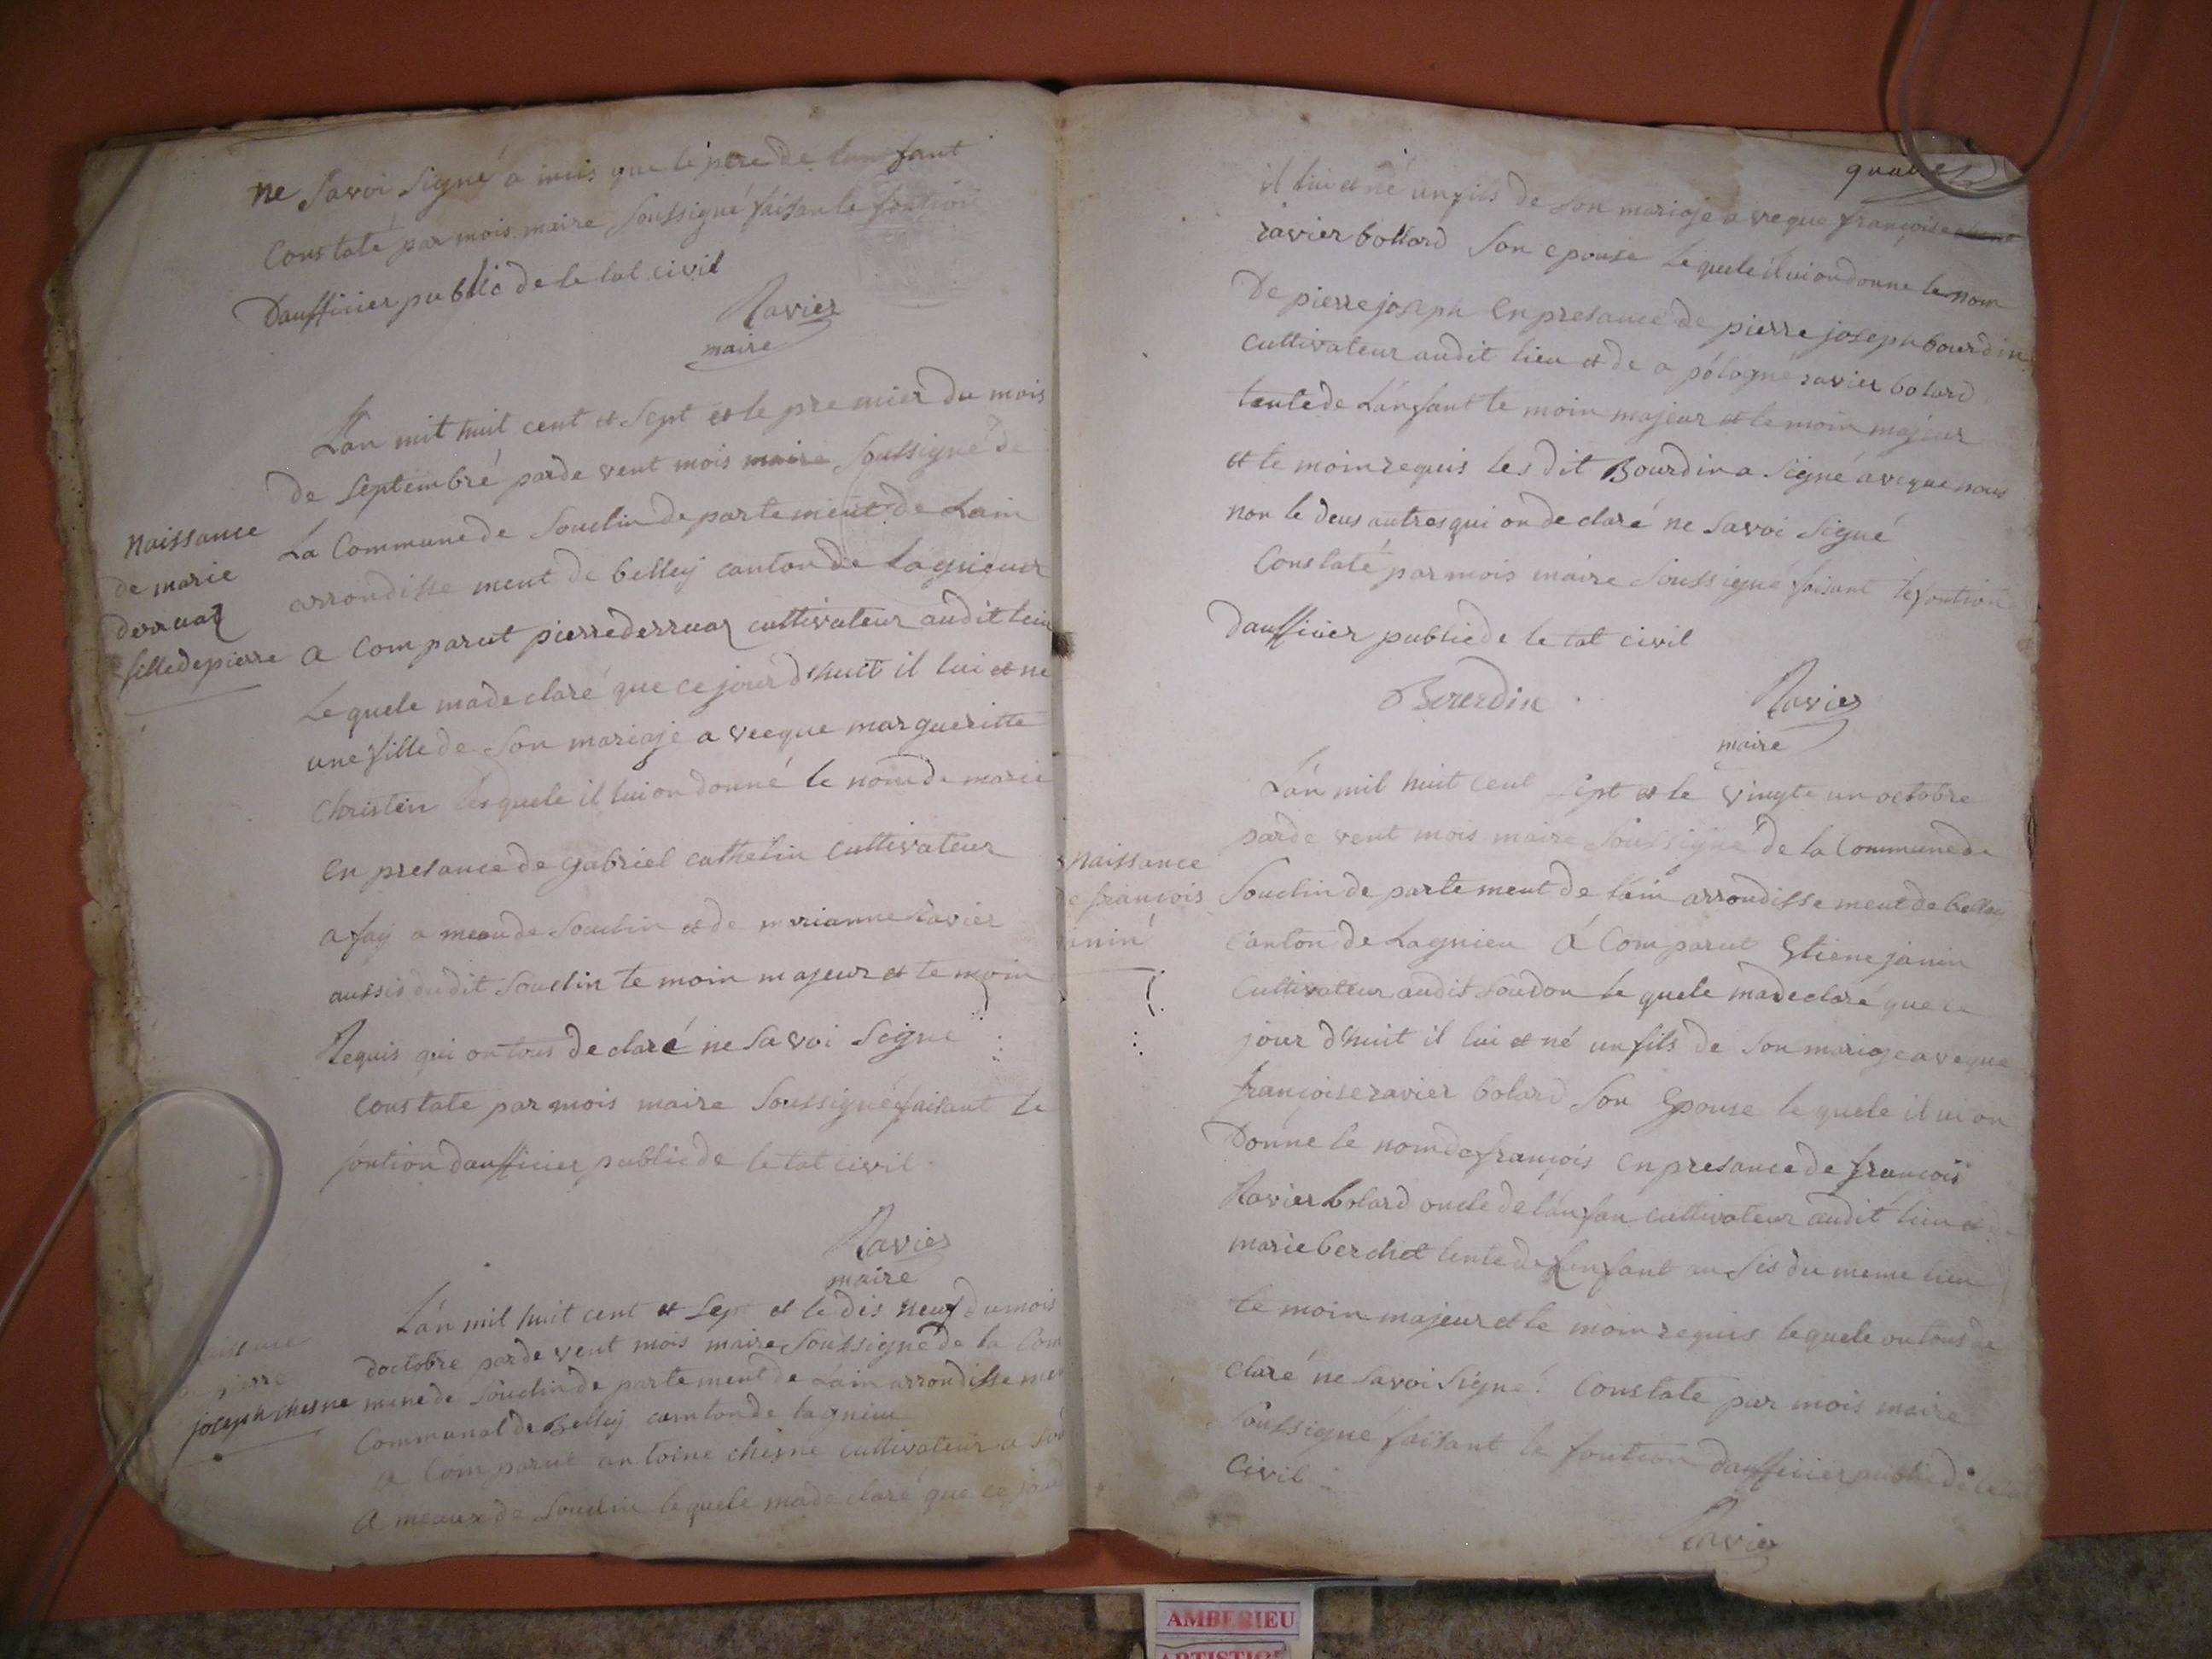 ne savoi signé a inis que le pere de lanfant
Constaté par mois maire soussigné faisan le fontion
Daufficier public de le tat civil
Ravier
maire
Lan mil huit cent et sept et le premier du mois
de septembré parde vent mois maire soussigné de
La Commune de Souclin de partement de Lain
arrondisse ment de belley canton de Lagnieux
naissance
de marie
derruaz
fille de pierre
a Comparut pierre derruaz cultivateur audit lieu
Le quele ma de claré que ce jour d'huit il lui et ne
une fille de son mariaje a vecque margueritte
Christin lesquele il lui on donné le nom de marie
En presance de gabriel cathelin cultivateur
a fay a meau de Souclin et de marianne Ravier
aussis dudit Souclin te moin majeur et te moin
Requis qui on tous de claré ne sa voi signe
Constate par mois maire soussigné faisant le
fontion daufficier public de le tat civil
Ravier
maire
Lán mil huit cent et sept et le dis neuf du mois
doctobre parde vent mois maire soussigné de la Com
mune de Souclin de partement de Láin arrondisse men
pierre
joseph chesne
Communal de Belley camton de lagnieu
a Comparut antoine chesne cultivateur a
a meaux de Souclin lequele ma de claré que ce jour
il lui et né un fils de son mariaje a veque françoise
ravier bollard son epouse Le quele il lui on donne le nom
De pierre joseph En presance de pierre joseph bourdin
cultivateur audit lieu et de a pólogne ravier bolard
tente de Lánfant te moin majeur et te moin majeur
et te moin requis les dit Bourdin a signé aveque nous
non le deus autres qui on de claré ne savoi signé
Constaté par mois maire soussigné faisant le fontion
daufficier public de le tat civil
Bourdin
Ravier
maire
Lán mil huit cent sept et le vingte un octobre
parde vent mois maire soussigné de la Commune de
naissance
de françois
Souclin de parte ment de láin arrondisse ment de belley
Canton de Lagnieu á Comparut Etiene janin
Cultivateur audit Soudon le quele ma declaré que ce
jour d'huit il lui et né un fils de son mariaje aveque
françoise ravier bolard son Epouse le quele il ui on
Donne le nom de françois En presance de françois
Ravier bolard oncle de lánfan cultivateur audit lieu et
marie berchet tente de Lenfant au sis du meme lieu
te moin majeur et te moin requis lequele on tous de
claré ne savoi signé. Constate par mois maire
soussigné faisant le fontion daufficier public de
Civil
Ravier
AMBERIEU
ARTISTIQUE